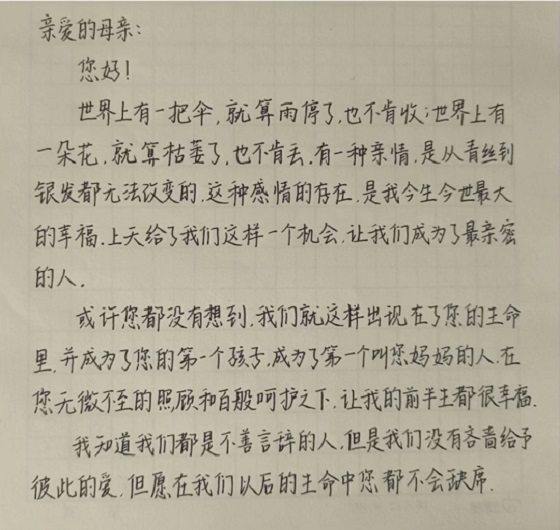 亲爱的母亲:
您好!
世界上有一把伞,就算雨停了,也不肯收;世界上有
一朵花,就算枯萎了,也不肯丢.有一种亲情,是从青丝到
银发都无法改变的.这种感情的存在,是我今生今世最大
的幸福.上天给了我们这样一个机会,让我们成为了最亲密
的人.
或许您都没有想到,我们就这样出现在了您的生命
里,并成为了您的第一个孩子,成为了第一个叫您妈妈的人.在
您无微不至的照顾和百般呵护之下,让我的前半生都很幸福.
我知道我们都是不善言辞的人.但是我们没有吝啬给予
彼此的爱.但愿在我们以后的生命中您都不会缺席.